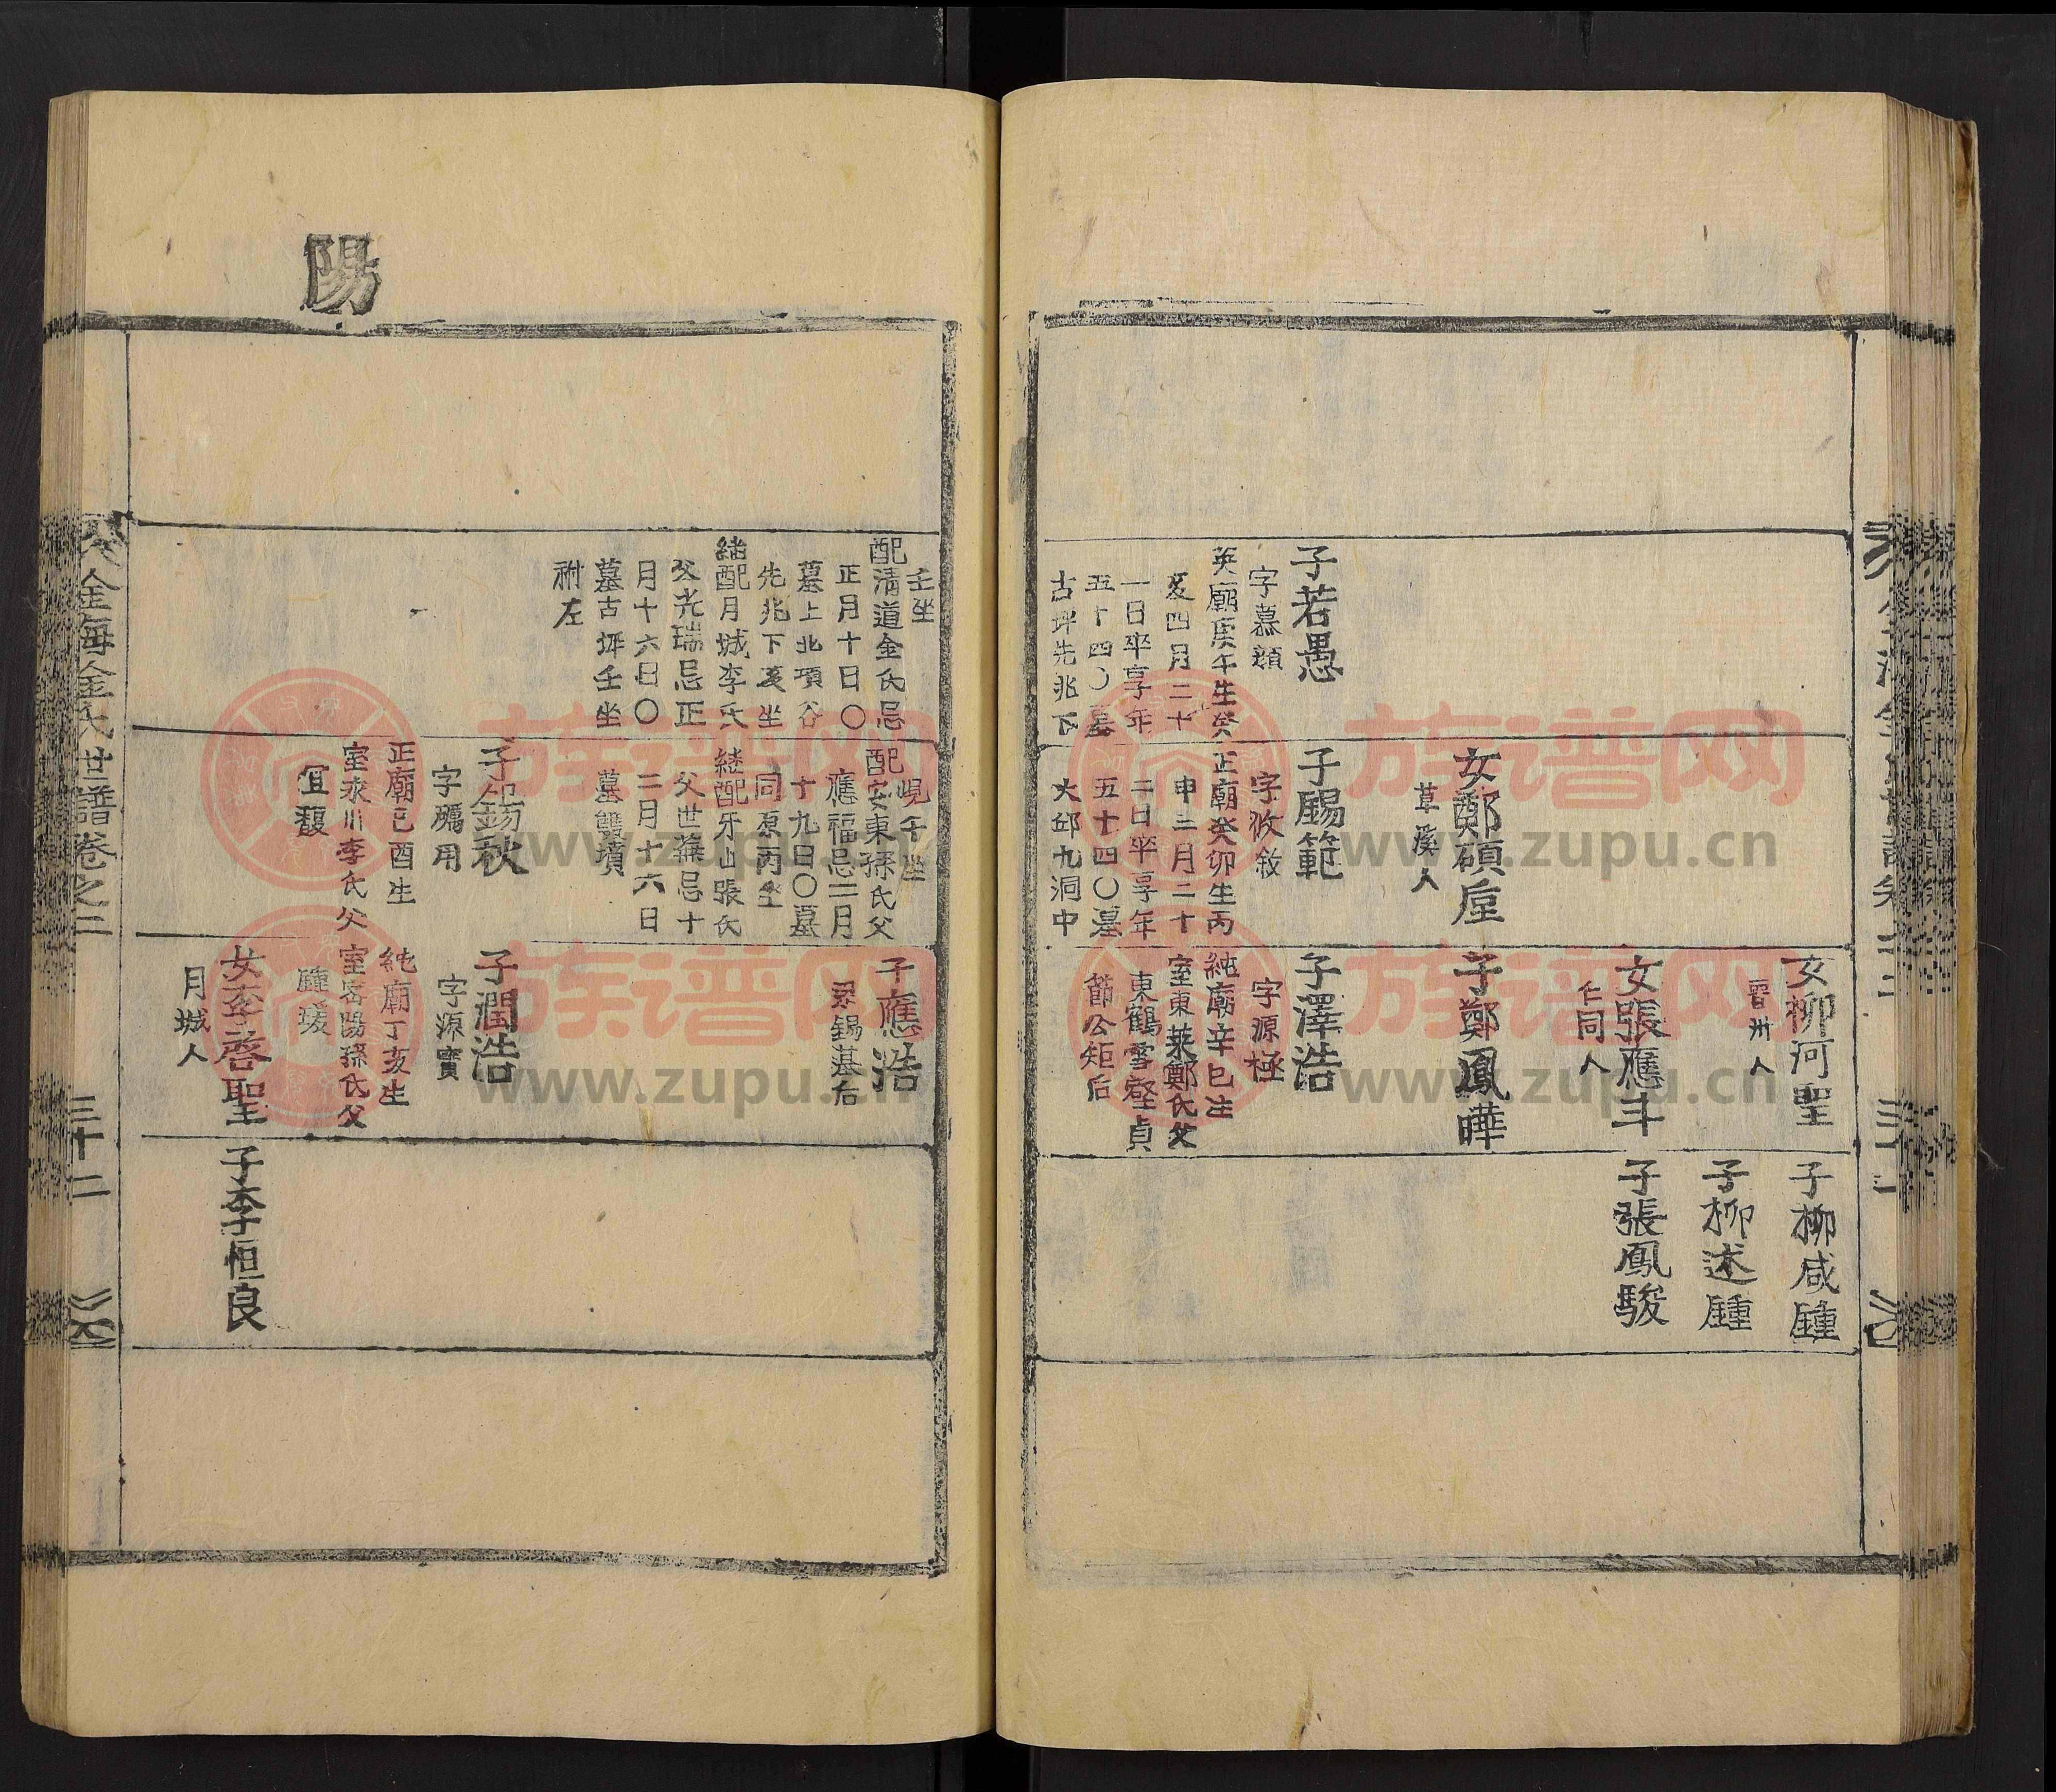 子若愚
字慕顔
英廟庚午生癸
亥四月二十
一日卒享年
五十四〇墓
古坪先兆下
女鄭碩垕
草溪人
子賜範
字攸敘
正廟癸卯生丙
申三月二十
二日卒享年
五十四〇墓
大邱九洞中
女柳河聖
晋州人
女張應斗
仁同人
子鄭鳳曄
子澤浩
字源極
純廟辛巳生
室東萊鄭氏父
東鶴雪壑貞
節公矩后
子柳咸鍾
子柳述鍾
子張鳳駿
陽
壬坐
配清道金氏忌
正月十日〇
墓上北項谷
先兆下亥坐
繼配月城李氏
父光瑞忌正
月十六日〇
墓古坪壬坐
祔左
峴午坐
配安東孫氏父
應福忌二月
十九日〇墓
同原丙坐
継配牙山張氏
父世 忌十
二月十六日
墓雙墳
子錫秋
字礪用
正廟己酉生
室永川李氏父
宜馥
子應浩
系錫基后
子潤浩
字源寶
純廟丁亥生
室密陽孫氏父
鍾
女李啓聖
月城人
子李恒良
金海金氏世譜卷之二
三十二